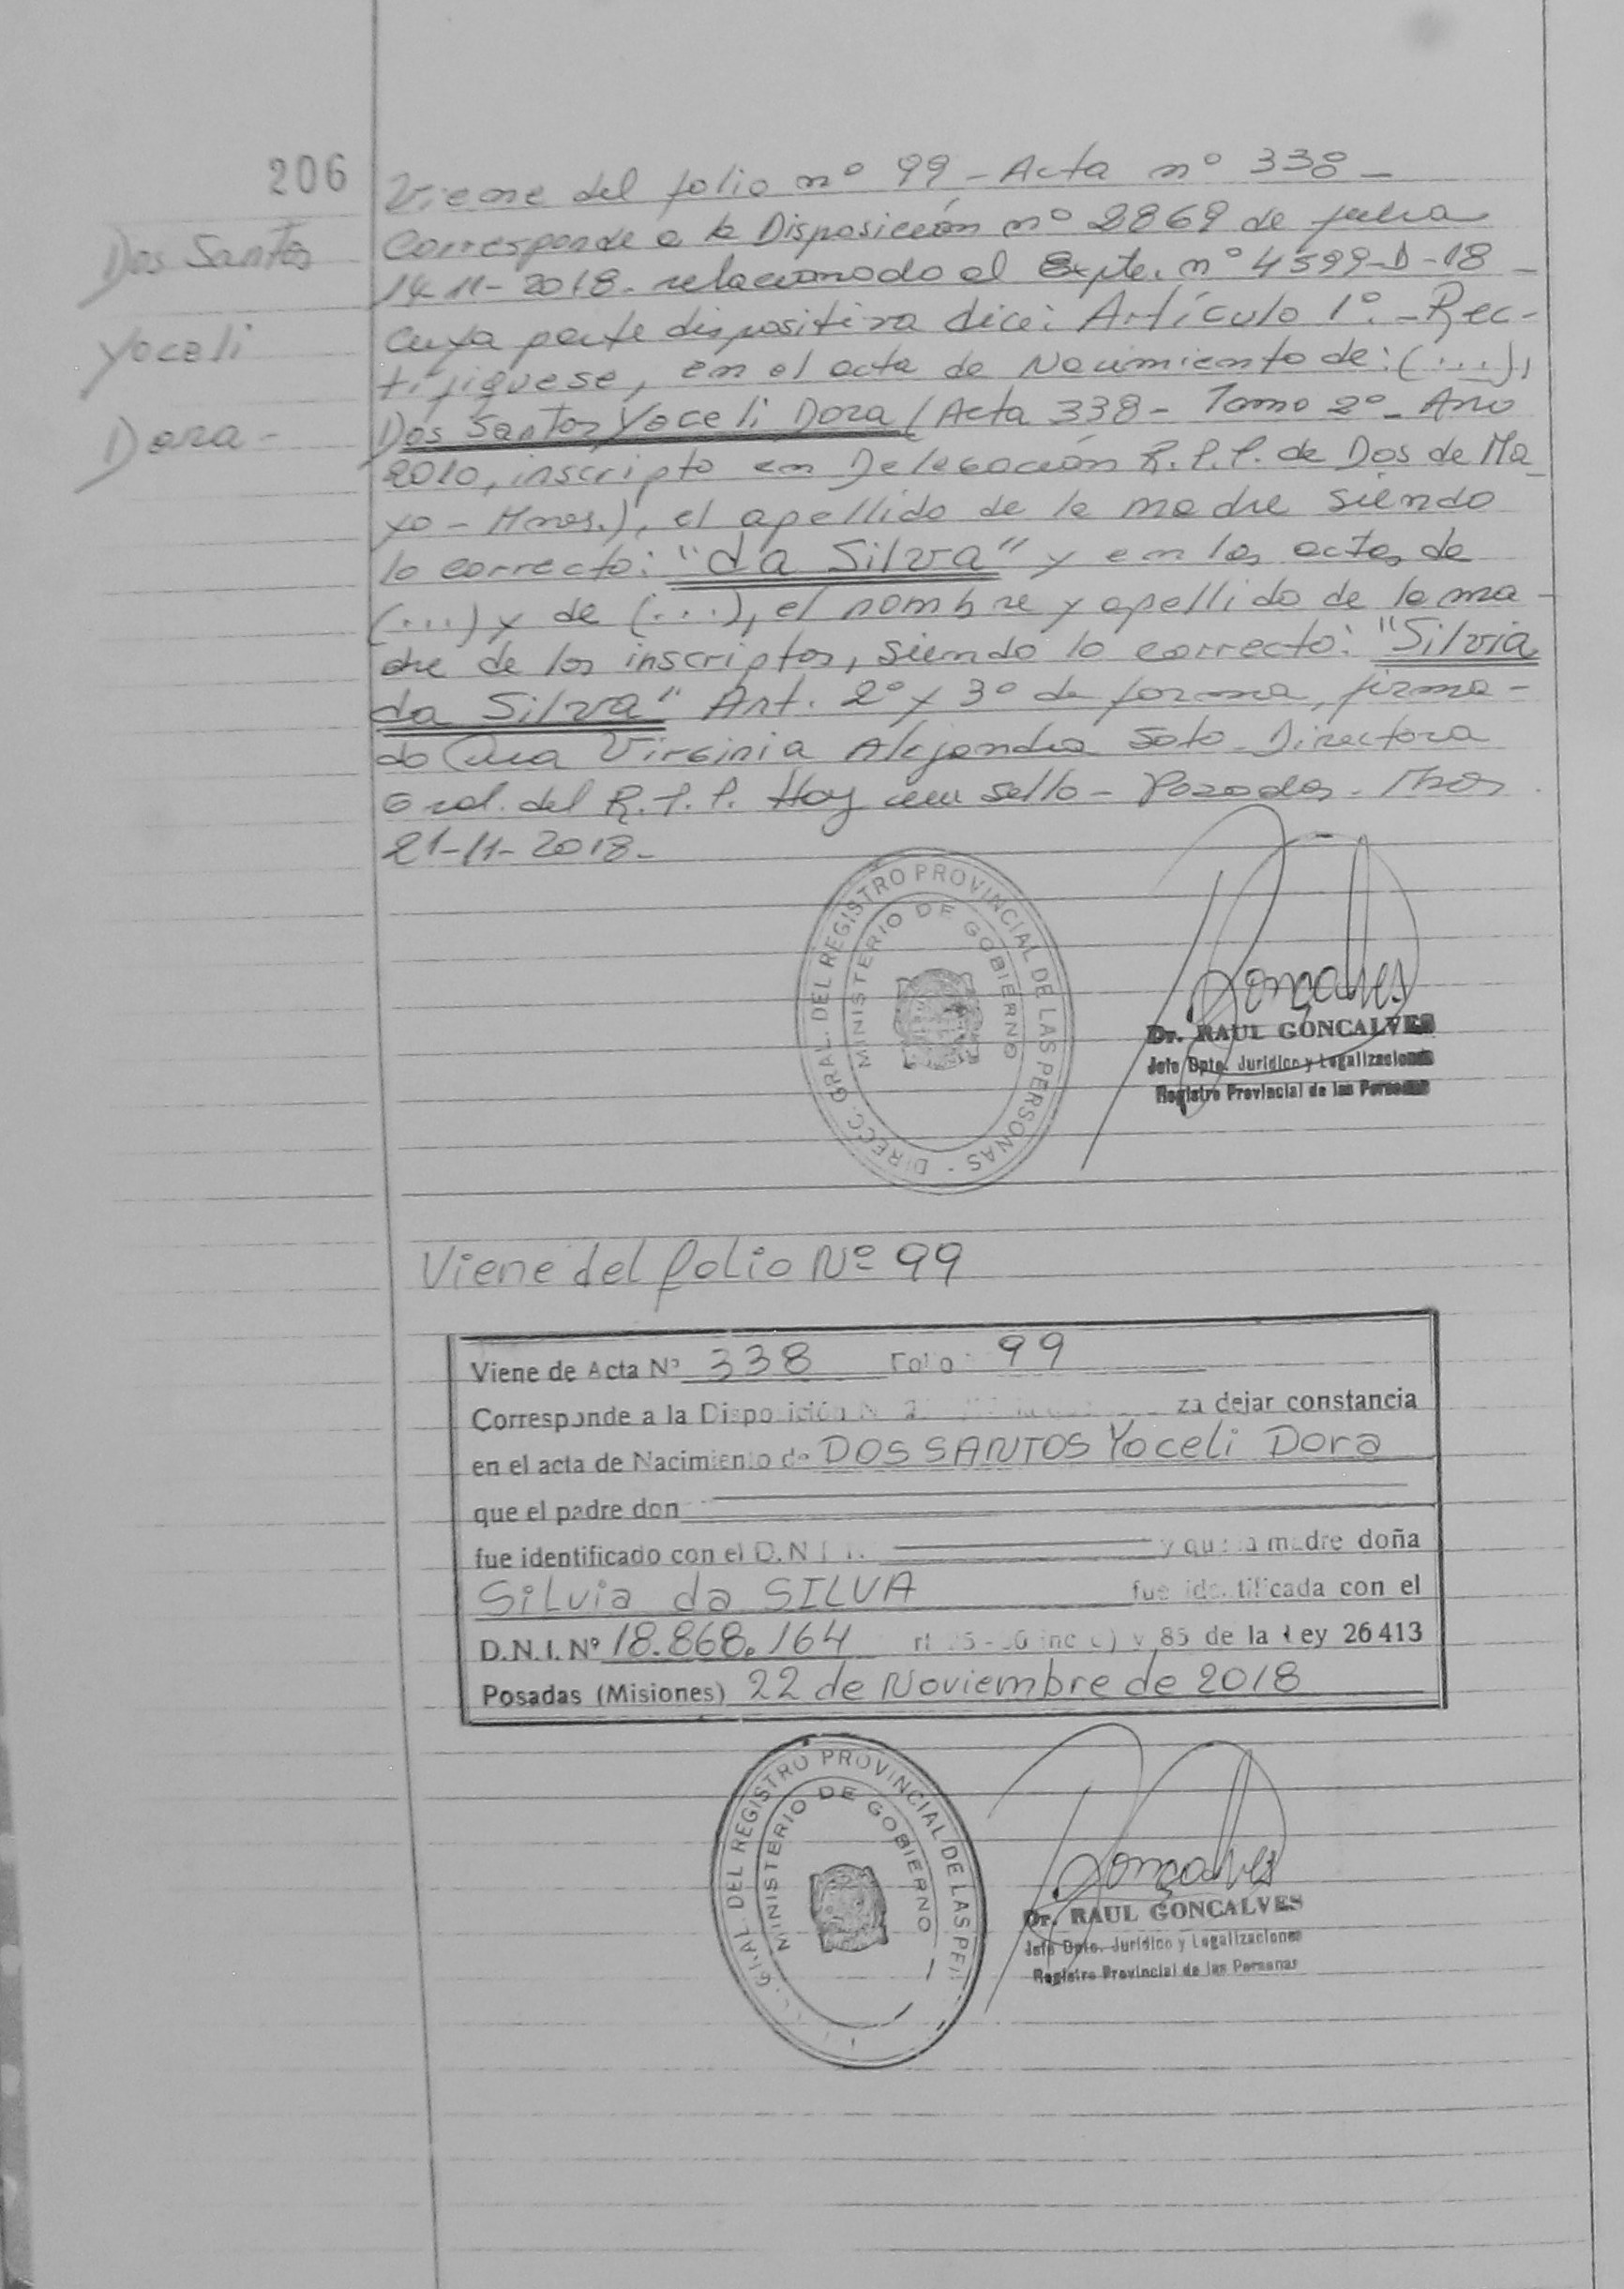 206
Dos Santos
Yoceli
Dora-
Viene del folio nº 99 - Acta nº 338 -
Corresponde a la Disposición nº 2869 de fecha
14-11-2018- relacionado al Expte. nº 4599-D-18 -
cuya parte dispositiva dice: Artículo 1º. - Rec-
tifíquese, en el acta de Nacimiento de: (...),
Dos Santos Yoceli Dora (Acta 338 - Tomo 2º - Año
2010, inscripto en Delegación R.P.P. de Dos de Ma
yo - Mnes.), el apellido de la madre siendo
lo correcto: "da Silva" y en las actas de
(...) y de (...), el nombre y apellido de la ma-
dre de los inscriptos, siendo lo correcto: "Silvia
da Silva" Art. 2º y 3º de forma, firma-
do Virginia Alejandra Soto - Directora
Gral. del R.P.P. Hay un sello - Posadas - Mnes
21-11-2018-
DIRECC. GRAL. DEL REGISTRO PROVINCIAL DE LAS PERSONAS -
MINISTERIO DE GOBIERNO
Gonçalves
Dr. RAUL GONCALVES
Jefe Dpto. Jurídico y Legalizaciones
Registro Provincial de las Personas
Viene del folio Nº 99
Viene de Acta Nº 338 Folio 99
Corresponde a la Disposición N za dejar constancia
en el acta de Nacimiento de DOS SANTOS Yoceli Dora
que el padre don
fue identificado con el D.N.I. y que la madre doña
Silvia da SILVA fue identificada con el
D.N.I. Nº 18.868.164 y 85 de la Ley 26413
Posadas (Misiones) 22 de Noviembre de 2018
GRAL. DEL REGISTRO PROVINCIAL DE LAS PER
MINISTERIO DE GOBIERNO
Gonçalves
Dr. RAUL GONCALVES
Jefe Dpto. Jurídico y Legalizaciones
Registro Provincial de las Personas